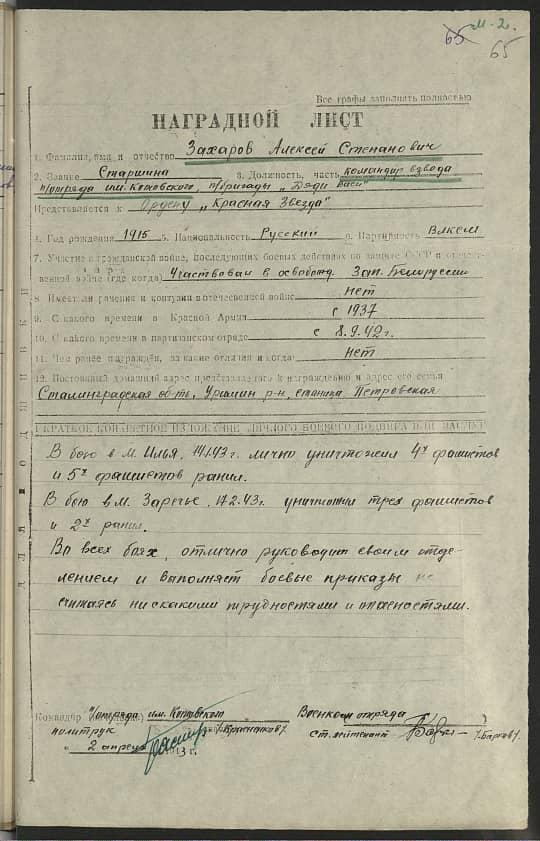 65 М-2.
65
Все графы заполнять полностью
НАГРАДНОЙ ЛИСТ
1. Фамилия, имя и отчество Захаров Алексей Степанович
2. Звание Старшина 3. Должность, часть командир взвода
п/отряда им. Котовского, п/бригады „Дяди Васи"
Представляется к Ордену „Красная Звезда"
4. Год рождения 1915 5. Национальность Русский 6. Партийность Влксм
7. Участие в гражданской войне, последующих боевых действиях по защите СССР и отечест-
венной войне (где когда) Участвовал в освобожд. Зап. Белоруссии
8 Имеет ли ранения и контузии в отечественной войне нет
9. С какого времени в Красной Армии с 1937
10. С какого времени в партизанском отряде с 8.9.42г.
11. Чем ранее награждён, за какие отличия и когда нет
12. Постоянный домашний адрес представляемого к награждению и адрес его семьи
Сталинградская об-ть, Урюпин р-н, станица Петровская
I КРАТКОЕ КОНКРЕТНОЕ ИЗЛОЖЕНИЕ ЛИЧНОГО БОЕВОГО ПОДВИГА ИЛИ ЗАСЛУГ
В бою в м. Илья, лично уничтожил 4х фашистов
и 5х фашистов ранил.
В бою в м. Заречье, 17.2.43г. уничтожил трех фашистов
и 2х ранил.
Во всех боях, отлично руководит своим отде-
лением и выполняет боевые приказы не
считаясь ни с какими трудностями и опасностями.
Командир п/отряда им. Котовского Военком отряда
политрук ст. лейтенант
„ 2 апреля 43 г.